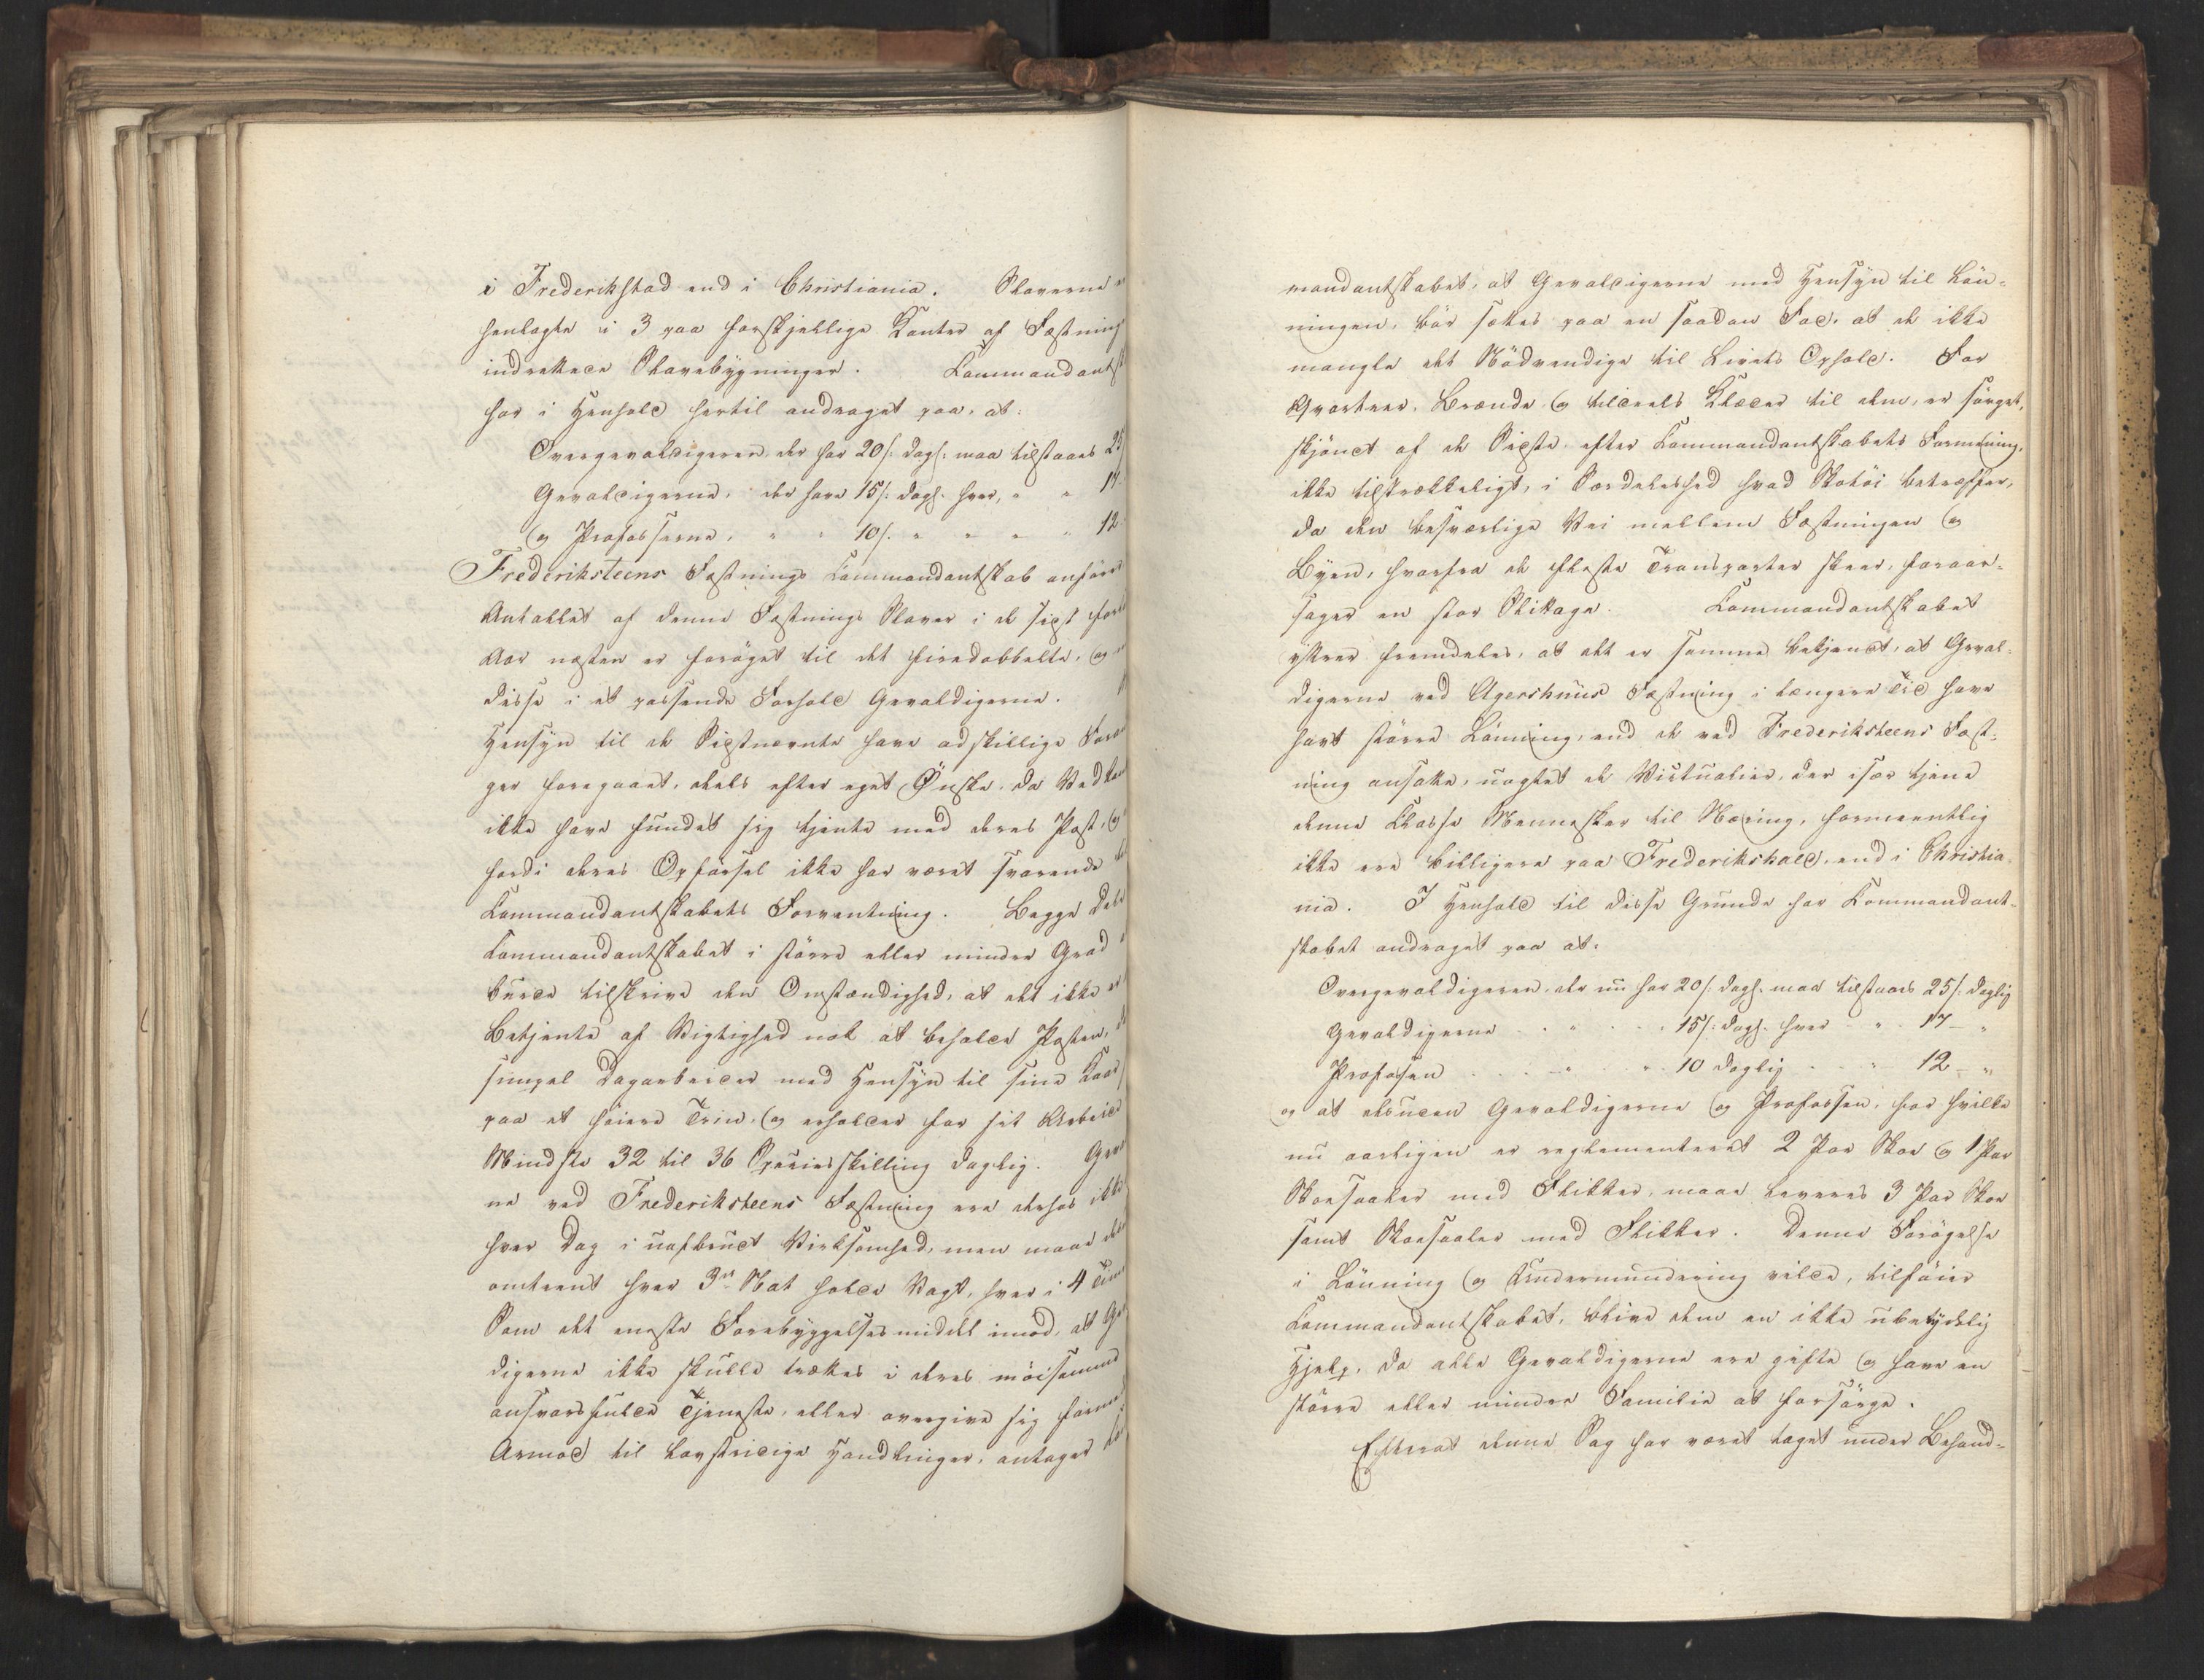 i Frederikstad end i Christiania. Slaverne
henlagte i 3 paa forskjellige Kanter af Fæstning
indrettede Slavebygninger. Commandants
har i Henhold hertil andraget paa, at:
Overgevaldigeren, der har 20 s. dagl: maa tilstaaes 25
Gevaldigerne, der have 15 s. dagl. hver, " " 17.
og Profosserne, " " 10 s. " " " " 12.
Frederiksteens Fæstnings Commandantskab anfører
Antallet af denne Fæstnings Slaver i de sidst
Aar næsten er forøget til det firedobbelte, og
disse i et passende Forhold Gevaldigerne.
Hensyn til de Sidstnævnte have adskillige
ger foregaaet, deels efter eget Ønske, da
ikke have fundet sig tjente med deres Post, og
fordi deres Opførsel ikke har været svarende
Commandantskabets Forventning. Begge Dele
Commandantskabet i større eller mindre Grad
burde tilskrive den Omstændighed, at det ikke er
Betjente af Vigtighed nok at beholde Posten,
simpel Dagarbeider med Hensyn til sine Kaar
paa et høiere Trin, og erholder for sit Arbeide
Mindste 32 til 36 Speciesskilling daglig. Geva
ne ved Frederiksteens Fæstning ere derhos ikke
hver Dag i uafbrudt Virksomhed, men maae
omtrent hver 3die Nat holde Vagt, hver i 4 Time
Som det eneste Forebyggelsesmiddel imod, at Ge
digerne ikke skulle trættes i deres møisomme
ansvarsfulde Tjeneste, eller overgive sig
Armod til lovstridige Handlinger, antager
mandantskabet, at Gevaldigerne med Hensyn til Løn-
ningen, bør sættes paa en saadan Fod, at de ikke
mangle det Nødvendige til Livets Ophold. For
Qvarteer, Brænde og tildeels Klæder til dem, er sørget,
skjøndt af de Sidste efter Commandantskabets Formening,
ikke tilstrækkeligt, i Særdeleshed hvad Skotøi betræffer,
da den besværlige Vei mellem Fæstningen og
Byen, hvorfra de fleste Transporter skeer, foraar-
sager en stor Slitage. Commandantskabet
yttrer fremdeles, at det er samme bekjendt, at Geval-
digerne ved Agershuus Fæstning i længere Tid have
havt større Lønning, end de ved Frederiksteens Fæst-
ning ansatte, uagtet de Victualier, der især tjene
denne Classe Mennesker til Næring, formeentlig
ikke ere billigere paa Frederikshald, end i Christia-
nia. I Henhold til disse Grunde har Kommandant-
skabet andraget paa at:
Overgevaldigeren, der nu har 20 s. dagl. maa tilstaaes 25 s. daglig
Gevaldigerne " 15 s. dagl. hver " 17 "
Profosen " " 10 daglig " 12 "
og at desuden Gevaldigerne og Profossen, for hvilke
nu aarligen er reglementeret 2 Par Skoe og 1 Par
Skoesaaler med Flikker, maae leveres 3 Par Skoe
samt Skoesaaler med Flikker. Denne Forøgelse
i Lønning og Undermundering vilde, tilføier
Commandantskabet, blive dem en ikke ubetydelig
Hjelp, da alle Gevaldigerne ere gifte og have en
større eller mindre Familie at forsørge.
Efterat denne Sag har været taget under Behand-